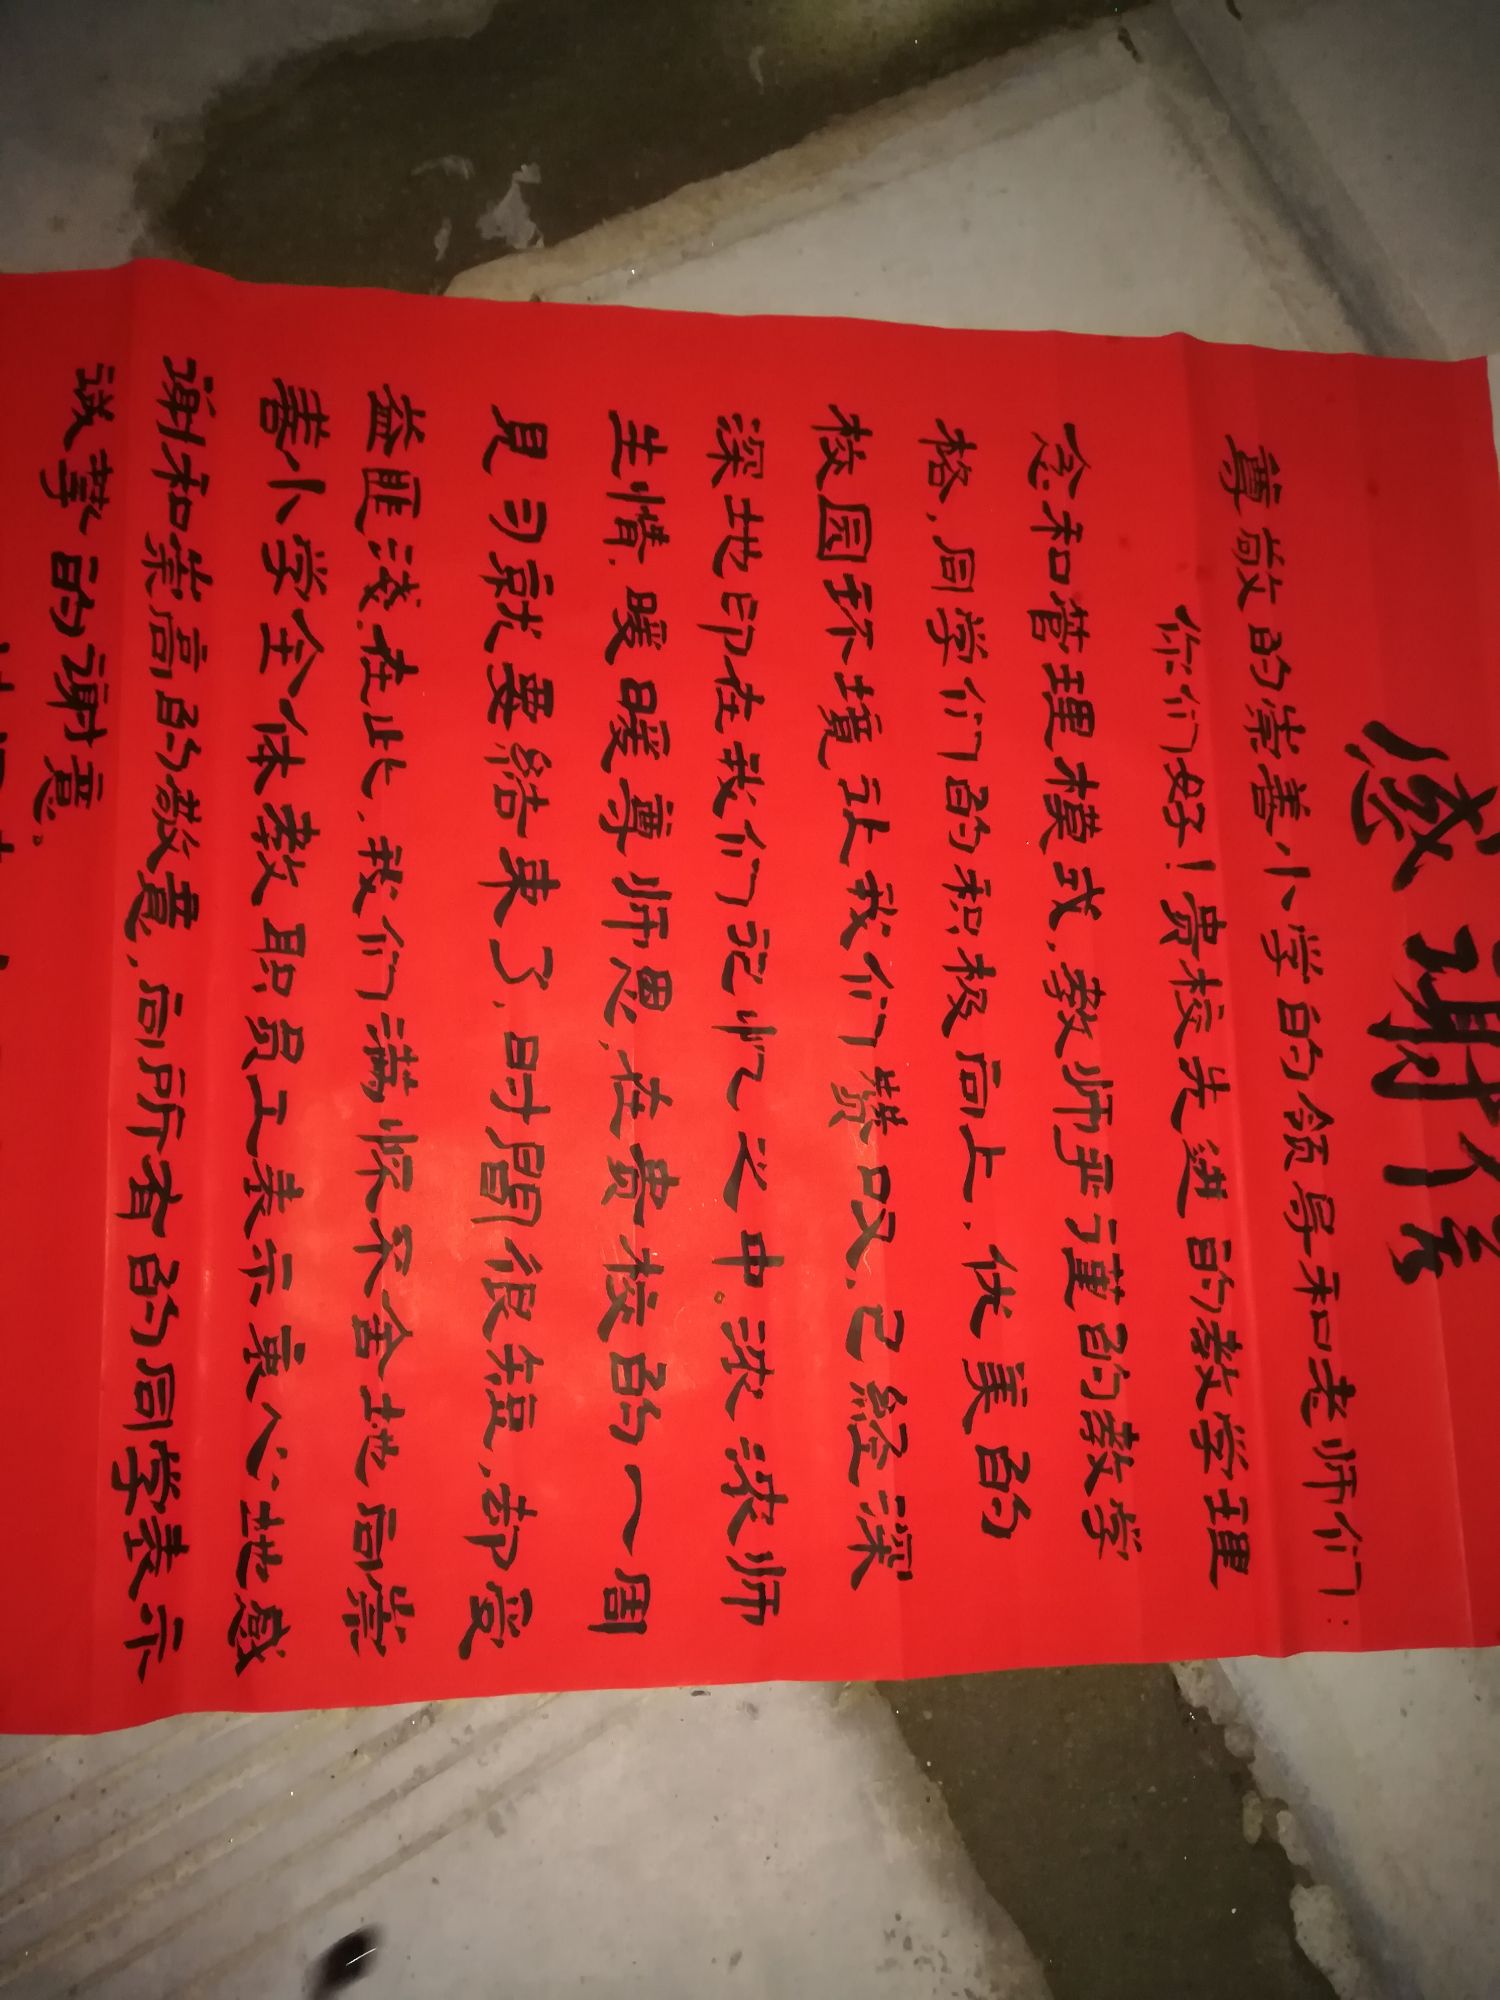 感谢信
尊敬的崇善小学的领导和老师们:
你们好!贵校先进的教学理
念和管理模式,教师严谨的教学
格,同学们的积极向上,优美的
校园环境让我们赞叹,已经深
深地印在我们记忆之中。浓浓师
生情,暖暖尊师恩,在贵校的一周
見习就要結束了,时間很短,却受
益匪浅.在此,我们满怀不舍地向崇
善小学全体教职员工表示衷心地感
谢和崇高的敬意,向所有的同学表示
诚挚的谢意。